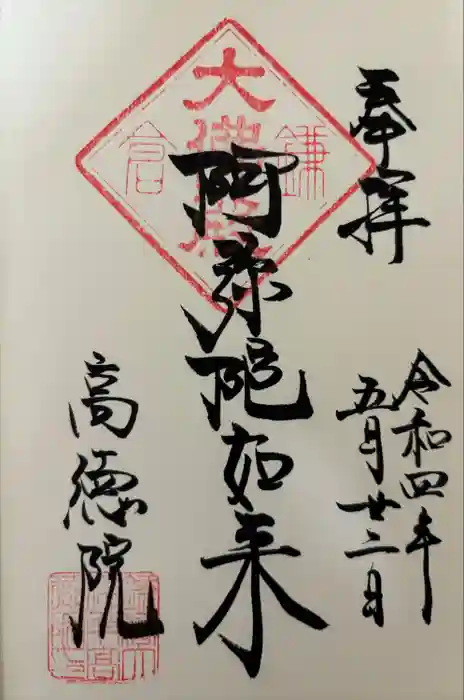 奉拝
令和四年
五月廿二日
鎌倉
大佛殿
阿弥陀如来
高徳院